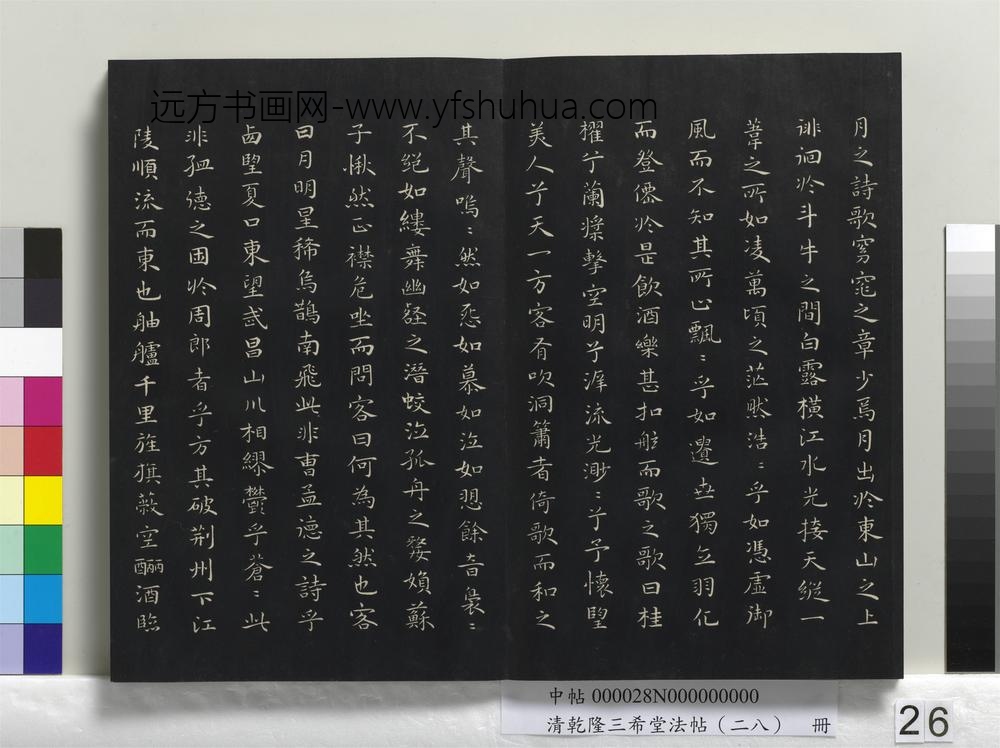 远方书画网-www.yfshuhua.com
月之詩歌窈窕之章少焉月出於東山之上
徘徊於斗牛之間白露橫江水光接天縱一
葦之所如凌萬頃之茫然浩:乎如馮虛御
風而不知其所止飄:乎如遺世獨立羽化
而登僊於是飲酒樂甚扣舷而歌之歌曰桂
櫂兮蘭槳擊空明兮泝流光渺:兮予懷望
美人兮天一方客有吹洞簫者倚歌而和之
其聲嗚:然如怨如慕如泣如愬餘音裊:
不絕如縷舞幽壑之潛蛟泣孤舟之嫠婦蘇
子愀然正襟危坐而問客曰何為其然也客
曰月明星稀烏鵲南飛此非曹孟德之詩乎
西望夏口東望武昌山川相繆鬱乎蒼:此
非孟德之困於周郎者乎方其破荆州下江
陵順流而東也舳艫千里旌旗蔽空釃酒臨
中帖 000028N000000000
清乾隆三希堂法帖（二八） 冊
26